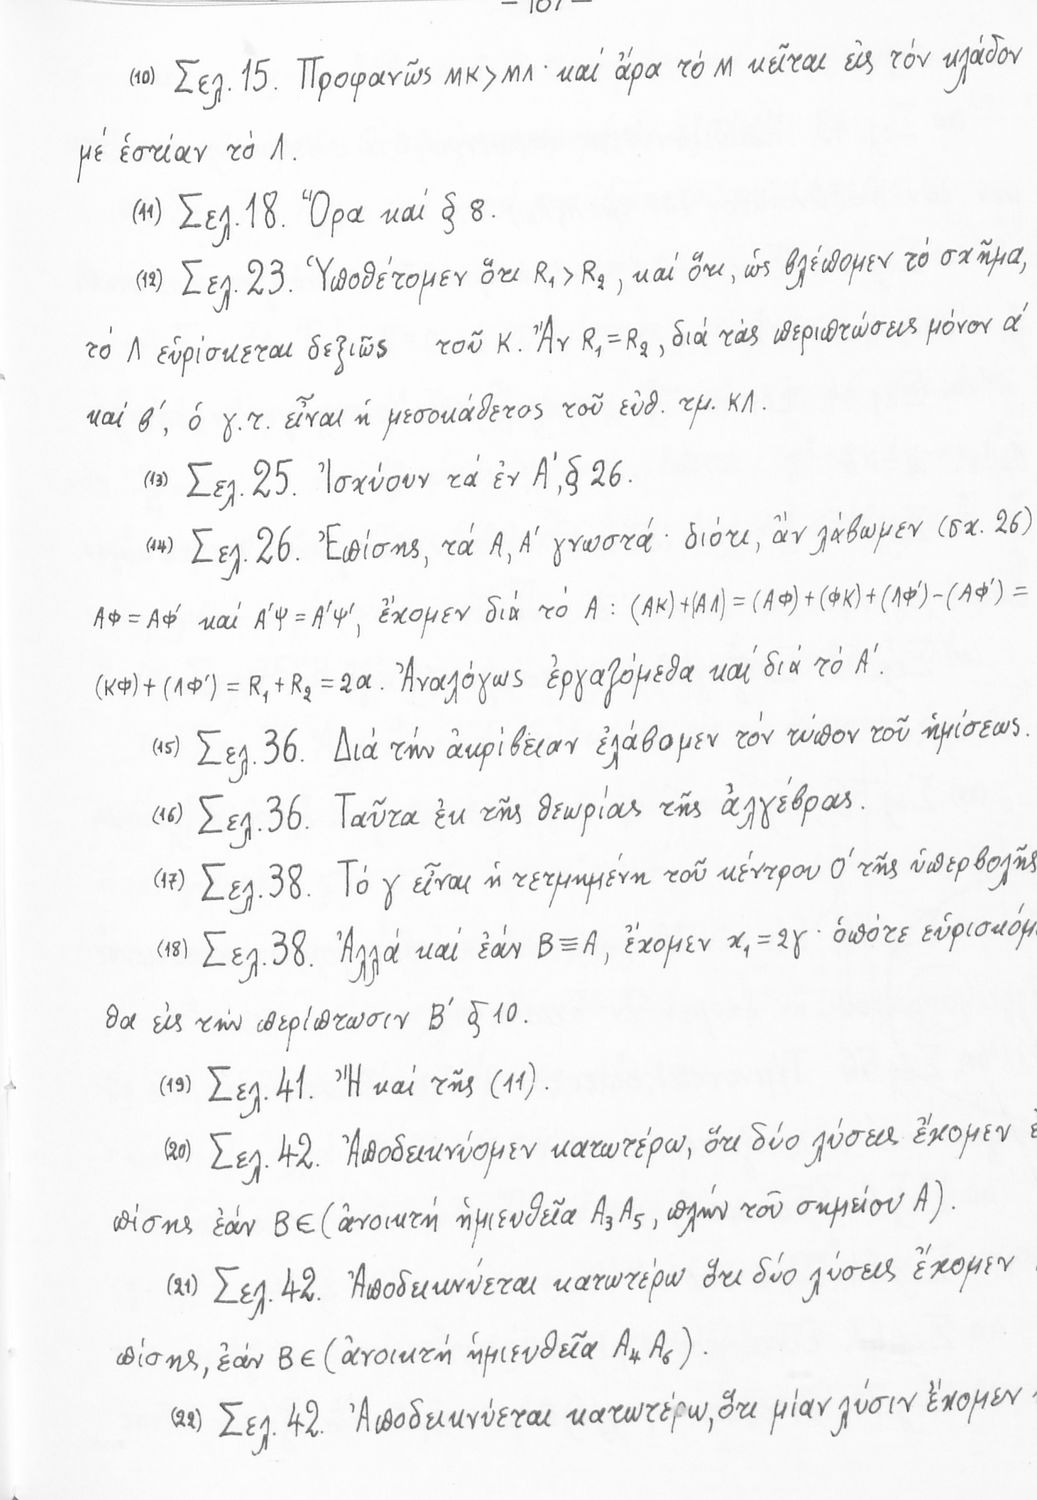 (10) Σελ. 15. Προφανῶς ΜΚ>ΜΛ· καί ἄρα τό Μ κεῖται εἰς τόν κλάδον
μέ ἑστίαν τό Λ.
(11) Σελ. 18. Ὅρα καί § 8.
(12) Σελ. 23. Ὑποθέτομεν ὅτι R₁ > R₂, καί ὅτι, ὡς βλέπομεν τό σχῆμα,
τό Λ εὑρίσκεται δεξιῶς τοῦ Κ. Ἄν R₁ = R₂, διά τάς περιπτώσεις μόνον α΄
καί β΄, ὁ γ.τ. εἶναι ἡ μεσοκάθετος τοῦ εὐθ. τμ. ΚΛ.
(13) Σελ. 25. Ἰσχύουν τά ἐν Α΄, § 26.
(14) Σελ. 26. Ἐπίσης, τά Α, Α΄ γνωστά· διότι, ἄν λάβωμεν (σχ. 26)
ΑΦ = ΑΦ΄ καί Α΄Ψ = Α΄Ψ΄, ἔχομεν διά τό Α : (ΑΚ)+(ΑΛ) = (ΑΦ)+(ΦΚ)+(ΛΦ΄)-(ΑΦ΄) =
(ΚΦ)+(ΛΦ΄) = R₁+R₂ = 2α. Ἀναλόγως ἐργαζόμεθα καί διά τό Α΄.
(15) Σελ. 36. Διά τήν ἀκρίβειαν ἐλάβομεν τόν τύπον τοῦ ἡμίσεως.
(16) Σελ. 36. Ταῦτα ἐκ τῆς θεωρίας τῆς ἀλγέβρας.
(17) Σελ. 38. Τό γ εἶναι ἡ τετμημένη τοῦ κέντρου Ο΄ τῆς ὑπερβολῆς
(18) Σελ. 38. Ἀλλά καί ἐάν Β≡Α, ἔχομεν x₁ = 2γ· ὁπότε εὑρισκόμ
θα εἰς τήν περίπτωσιν Β΄ § 10.
(19) Σελ. 41. Ἤ καί τῆς (11).
(20) Σελ. 42. Ἀποδεικνύομεν κατωτέρω, ὅτι δύο λύσεις ἔχομεν ἐ
πίσης ἐάν Β∈(ἀνοικτή ἡμιευθεῖα Α₃Α₅, πλήν τοῦ σημείου Α).
(21) Σελ. 42. Ἀποδεικνύεται κατωτέρω ὅτι δύο λύσεις ἔχομεν
πίσης, ἐάν Β∈(ἀνοικτή ἡμιευθεῖα Α₄Α₆).
(22) Σελ. 42. Ἀποδεικνύεται κατωτέρω, ὅτι μίαν λύσιν ἔχομεν